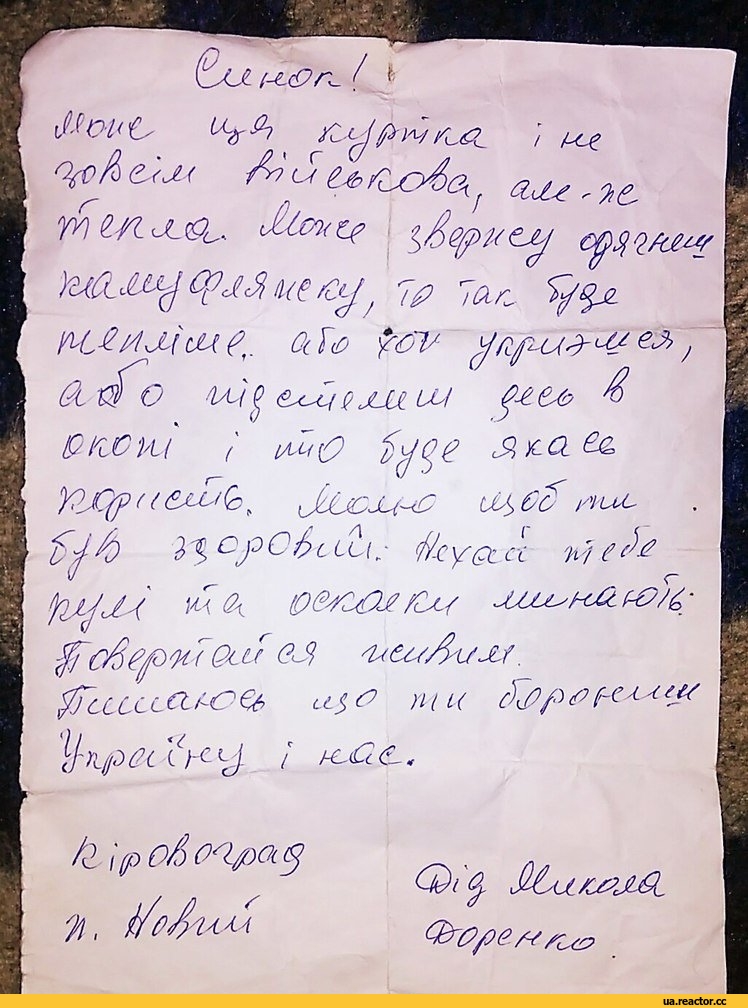 Синок!
Може ця куртка і не
зовсім військова, але-же
тепла. Може зверху одягнеш
камуфляжку, то так буде
тепліше. або хоч укриэшся,
або підстелиш десь в
окопі і то буде якась
користь. Молю щоб ти
був здоровий. Нехай тебе
кулі та осколки минають.
Повертайся живим.
Пишаюсь що ти борониш
Україну і нас.
Кіровоград
п. Новий
Дід Микола
Доренко
ua.reactor.cc